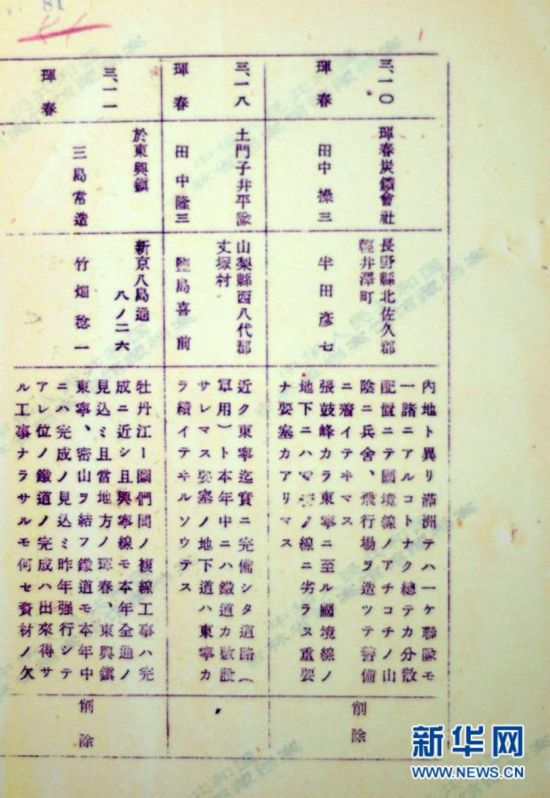 81
三、一〇
琿春
琿春炭鑛會社
田中操三
長野縣北佐久郡
輕井澤町
半田彥七
內地ト異リ滿洲テハ一ケ聯隊モ
一諸ニアルコトナク總テカ分散
配置ニテ國境線ノアチコチノ山
陰ニ兵舍、飛行場ヲ造ツテ警備
ニ着イテヰマス
張鼓峰カラ東寧ニ至ル國境線ノ
地下ニハマヂノ線ニ劣ラス重要
ナ要塞カアリマス
削除
三、一八
琿春
土門子井平隊
田中隆三
山梨縣西八代郡
丈塚村
鹽島喜前
近ク東寧迄實ニ完備シタ道路(
軍用)ト本年中ニハ鐵道カ敷設
サレマス要塞ノ地下道ハ東寧カ
ラ續イテヰルソウテス
三、一一
琿春
於東興鎭
三島常造
新京八島通
八ノ二六
竹畑稔一
牡丹江ー圖們間ノ複線工事ハ完
成ニ近シ且興寧線モ本年全通ノ
見込ミ且當地方ノ琿春、東興鎭
東寧、密山ヲ結フ鐵道モ本年中
ニハ完成ノ見込ミ昨年强行シテ
アレ位ノ鐵道ノ完成ハ出來得サ
ル工事ナラサルモ何セ資材ノ欠
削除
新华网
NEWS.CN